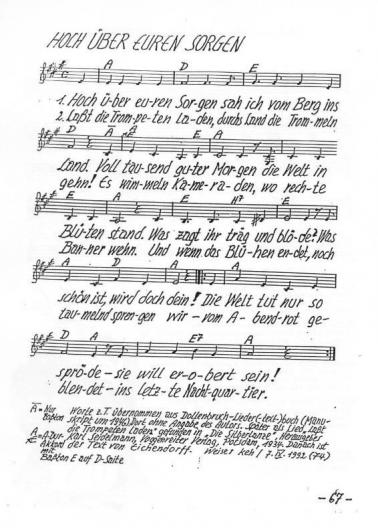 HOCH ÜBER EUREN SORGEN
A D E
1. Hoch ü-ber eu-ren Sor-gen sah ich vom Berg ins
2. Laßt die Trom-pe-ten La-den, durchs Land die Trom-meln
A D A
Land. Voll tau-send gu-ter Mor-gen die Welt in
gehn! Es wim-meln Ka-me-ra-den, wo rech-te
E A E H7 E
Blü-ten stand. Was zagt ihr träg und blö-de? Was
Ban-ner wehn. Und wenn das Blü-hen en-det, noch
A D A
schön ist, wird doch dein! Die Welt tut nur so
tau-melnd spren-gen wir - vom A-bend-rot ge-
D A E7 A
sprö-de - sie will er-o-bert sein!
blen-det - ins letz-te Nacht-quar-tier.
A = Nur Worte z.T. übernommen aus Dollenbruch-Lieder(-text-)buch (Manu-
Baßton skript um 1946) Dort ohne Angabe des Autors. Später als Lied „Laßt
die Trompeten laden" gefunden in „Die Silberlanze", Herausgeber
A = A-Dur- Karl Seidelmann, Voggenreiter Verlag, Potsdam, 1934. Danach ist
Akkord der Text von Eichendorff. Weise: keh / 7. IV. 1992 (74.)
mit
Baßton E auf D-Saite
- 67 -